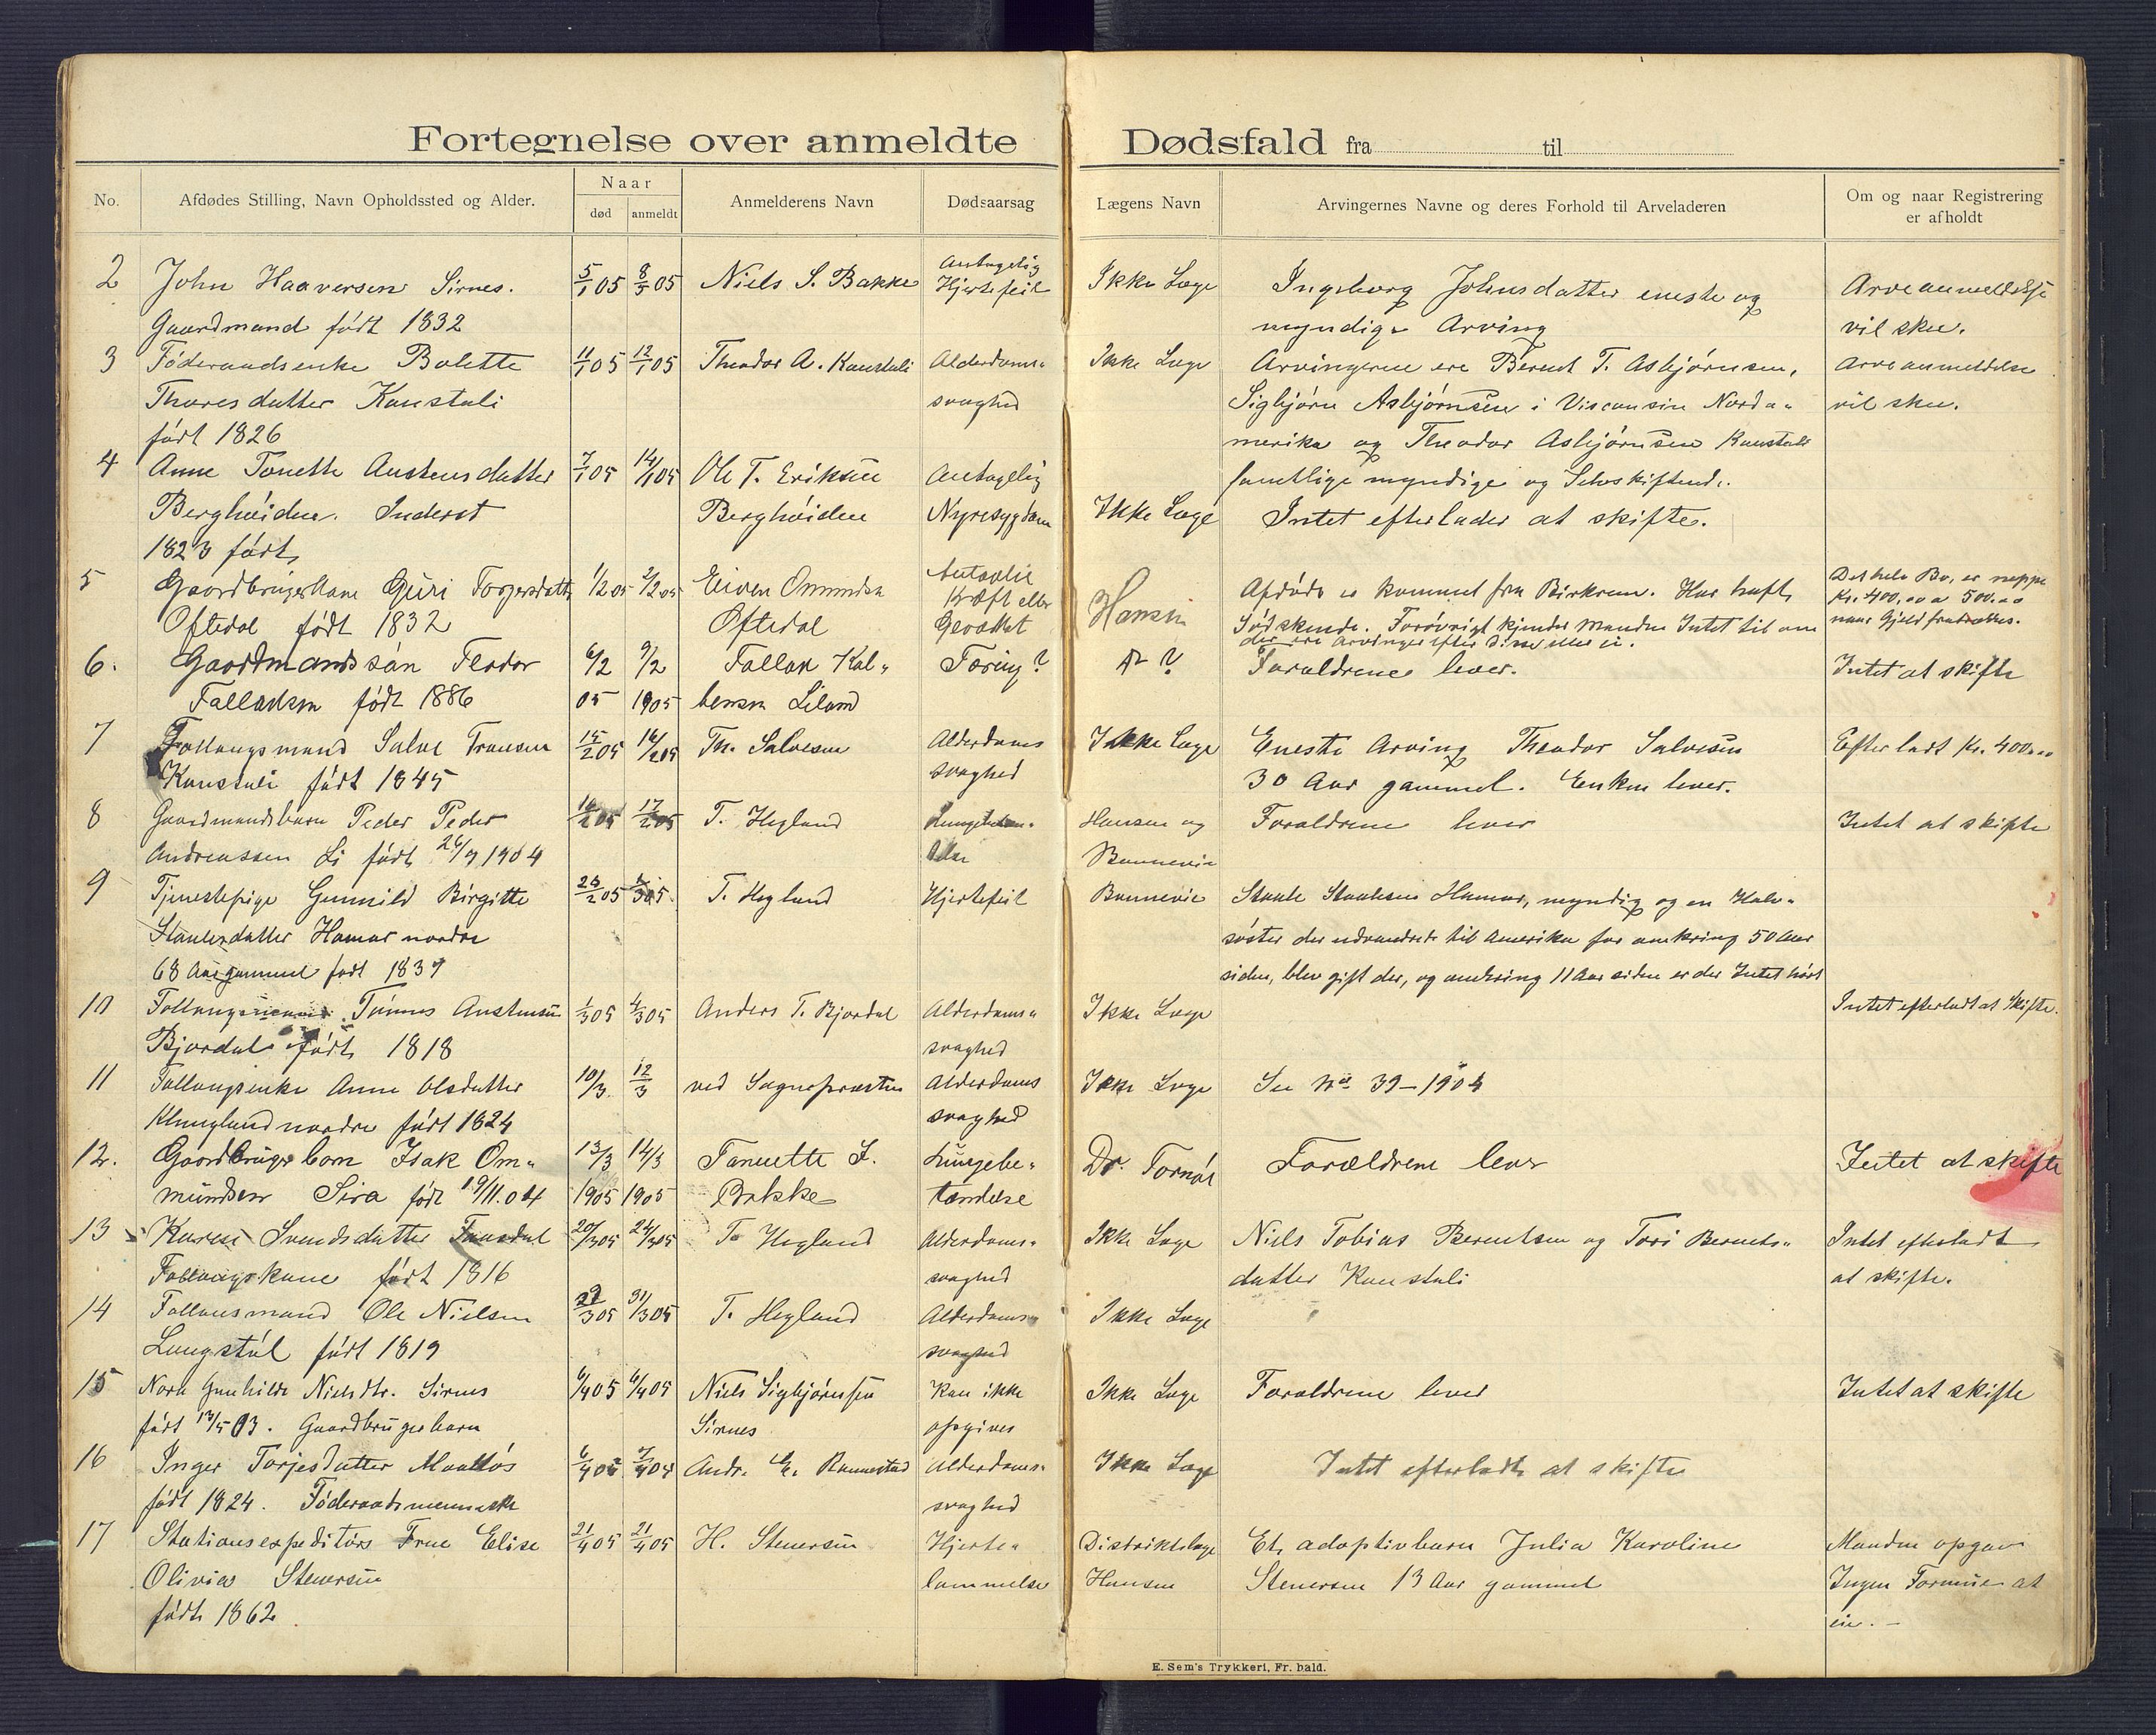 Fortegnelse over anmeldte Dødsfald fra til
No.
Afdødes Stilling, Navn Opholdssted og Alder.
Naar
død
anmeldt
Anmelderens Navn
Dødsaarsag
Lægens Navn
Arvingernes Navne og deres Forhold til Arveladeren
Om og naar Registrering
er afholdt
2 John Haaversen Sirnes. 5/1 05 Niels S. Bakke Antagelig
Hjertefeil Ikke Læge Ingeborg Johnsdatter eneste og Arveanmeldelse
Gaardmand født 1832 myndige Arving vil skee.
3 Føderaadsenke Bolette 11/1 05 12/1 05 Theodor A. Kanstuli Alderdoms- Ikke Læge Arvingerne ere Berent T. Asbjørnsen, Arveanmeldelse
Thoresdatter Kanstuli svaghed Sigbjørn Asbjørnsen i Visconsin Norda- vil skee.
født 1826 merika og Theodor Asbjørnsen Kanstuli
samtlige myndige og Selvskiftende.
4 Anne Tonette Austensdatter 7/1 05 14/1 05 Ole T. Eriksen Antagelig
Berghøiden. Inderst Berghøiden Nyresygdom Ikke Læge Intet efterlader at skifte.
1823 født
5 Gaardbrugerkone Guri Torgersdatter 1/2 05 2/2 05 Eiven Omundsen Antagelig
Kræft eller Hansen Afdøde er kommet fra Birkrem. Har havt Det hele Bo, er neppe
Kr. 400,00 a 500.00
Oftedal født 1832 Oftedal Gevækst Sødskende. Forøvrigt kjender Manden Intet til om naar Gjeld fradrages.
der ere Arvinger efter Disse eller ei.
6. Gaardmandssøn Teodor 6/2 9/2 Tallak Kol- Tæring? Dr ? Forældrene lever. Intet at skifte
Tallaksen født 1886 05 1905 bensen Liland
7 Follaugsmand Salve Fransen 15/2 05 16/2 05 Th. Salvesen Alderdoms Ikke Læge Eneste Arving Theodor Salvesen Efterladt Kr. 400.00
Kanstuli født 1845 svaghed 30 Aar gammel. Enken lever.
8 Gaardmandsbarn Peder Peder 16/2 05 17/2 05 T. Hegland Hansen og Forældrene lever Intet at skifte
Andreassen Li født 1904 Bonnevie
9 Tjenestepige Gunnild Birgitte 05 T. Hegland Hjertefeil Bonnevie Staale Staalesen Hamar, myndig og en Halv-
Staalesdatter Hamar nordre søster der udvandrede til Amerika for omkring 50 Aar
68 Aar gammel født 1837 siden, blev gift der, og omkring 11 Aar siden er der Intet hørt
10 Tønnes Austensen 1/3 05 4/3 05 Anders T. Bjordal Alderdoms- Ikke Læge Intet efterladt at skifte.
Bjordal født 1818 svaghed
11 Follaugsenke Anne Olsdatter 10/3 12/3 ved Sognepræsten Alderdoms Ikke Læge See No 39 - 1904
Klungland nordre født 1824 svaghed
12. Gaardbruger barn Isak Om- 13/3 14/3 Tanette I. Lungebe- Dr. Tornøe Forældrene lever Intet at skifte
mundsen Sira født 19/11.04 1905 1905 Bakke tændelse
13 Karen Svendsdatter 20/3 05 24/3 05 T. Hegland Alderdoms- Ikke Læge Niels Tobias Berentsen og Tori Bernts- Intet efterladt
Follaugskone født 1816 svaghed datter Kanstuli at skifte.
14 Follausmand Ole Nielsen 05 31/3 05 T. Hegland Alderdoms- Ikke Læge
Langstøl født 1819 svaghed
15 Nora Gunhilde Nielsdtr. Sirnes 6/4 05 6/4 05 Niels Sigbjørnsen Kan ikke Ikke Læge Forældrene lever Intet at skifte
født 13/5 03. Gaardbrugerbarn Sirnes opgives
16 Inger Torjesdatter 6/4 05 7/4 05 Andr. E. Rannestad Alderdoms- Ikke Læge Intet efterladt at skifte
født 1824. Føderaadsmenneske svaghed
17 Stationsexpeditørs Frue Elise 21/4 05 21/4 05 H. Stenersen Hjerte- Distriktslæge Et adoptivbarn Julia Karoline Manden opgav
Olivia Stenersen lammelse Hansen Stenersen 13 Aar gammel Ingen Formue at
født 1862. eie. -
E. Sem's Trykkeri, Fr. hald.